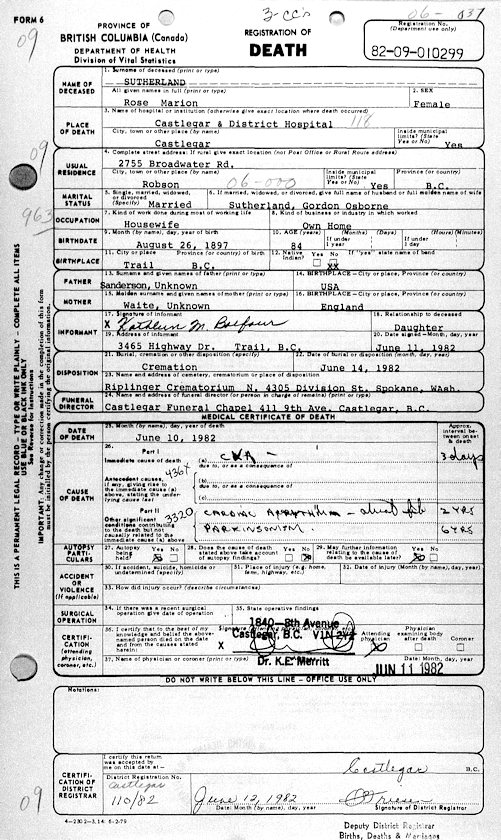 FORM 6
3-cc's
06- 037
09
PROVINCE OF
BRITISH COLUMBIA (Canada)
DEPARTMENT OF HEALTH
Division of Vital Statistics
REGISTRATION OF
DEATH
Registration No.
(Department use only)
82-09-010299
NAME OF DECEASED
1. Surname of deceased (print or type)
SUTHERLAND
All given names in full (print or type)
2. SEX
Rose Marion
Female
PLACE OF DEATH
3. Name of hospital or institution (otherwise give exact location where death occurred)
Castlegar & District Hospital
116
City, town or other place (by name)
Inside municipal limits? (State Yes or No)
Castlegar
Yes
09
USUAL RESIDENCE
4. Complete street address: If rural give exact location (not Post Office or Rural Route address)
2755 Broadwater Rd.
City, town or other place (by name)
Inside municipal limits? (State Yes or No)
Province (or country)
Robson
06-000
Yes
B.C.
MARITAL STATUS
5. Single, married, widowed, or divorced (Specify)
Married
6. If married, widowed, or divorced, give full name of husband or full maiden name of wife
Sutherland, Gordon Osborne
963
OCCUPATION
7. Kind of work done during most of working life
8. Kind of business or industry in which worked
Housewife
Own Home
BIRTHDATE
9. Month (by name), day, year of birth
10. AGE (years)
(Months)
(Days)
(Hours)
(Minutes)
August 26, 1897
84
If under 1 year
If under 1 day
BIRTHPLACE
11. City or place
Province (or country) of birth
12. Native Indian?
Yes
No
If "yes" state name of band
Trail B.C.
xx
FATHER
13. Surname and given names of father (print or type)
14. BIRTHPLACE - City or place, Province (or country)
Sanderson, Unknown
USA
MOTHER
15. Maiden surname and given names of mother (print or type)
16. BIRTHPLACE - City or place, Province (or country)
Waite, Unknown
England
INFORMANT
17. Signature of informant
18. Relationship to deceased
X Kathleen M. Balfour
Daughter
19. Address of informant
20. Date signed - Month, day, year
3465 Highway Dr. Trail, B.C.
June 11, 1982
DISPOSITION
21. Burial, cremation or other disposition (specify)
22. Date of burial or disposition (month, day, year)
Cremation
June 14, 1982
23. Name and address of cemetery, crematorium or place of disposition
Riplinger Crematorium N. 4305 Division St. Spokane, Wash.
FUNERAL DIRECTOR
24. Name and address of funeral director (or person in charge of remains) (print or type)
Castlegar Funeral Chapel 411 9th Ave. Castlegar, B.C.
MEDICAL CERTIFICATE OF DEATH
DATE OF DEATH
25. Month (by name), day, year of death
June 10, 1982
Approx. interval between onset & death
CAUSE OF DEATH
26. Part I
Immediate cause of death
(a) CVA
3 days
due to, or as a consequence of
436X
Antecedent causes, if any, giving rise to the immediate cause (a) above, stating the underlying cause last
(b)
due to, or as a consequence of
(c)
Part II
3320
Other significant conditions contributing to the death but not causally related to the immediate cause (a) above
CARDIAC ARRYTHMIA - atrial fib
2 YRS
PARKINSONISM.
6 YRS
AUTOPSY PARTICULARS
27. Autopsy being held?
Yes
No
28. Does the cause of death stated above take account of autopsy findings?
Yes
No
29. May further information relating to the cause of death be available later?
Yes
No
ACCIDENT OR VIOLENCE (If applicable)
30. If accident, suicide, homicide or undetermined (specify)
31. Place of injury (e.g. home, farm, highway, etc.)
32. Date of injury (Month (by name), day, year)
33. How did injury occur? (describe circumstances)
SURGICAL OPERATION
34. If there was a recent surgical operation give date of operation
35. State operative findings
CERTIFICATION (attending physician, coroner, etc.)
36. I certify that to the best of my knowledge and belief the above-named person died on the date and from the causes stated herein:
1840-8th Avenue
Castlegar, B.C. V1N 2Y2
X
Attending physician
Physician examining body after death
Coroner
37. Name of physician or coroner (print or type)
Dr. K.E. Merritt
Date: Month, day, year
JUN 11 1982
DO NOT WRITE BELOW THIS LINE - OFFICE USE ONLY
Notations:
CERTIFICATION OF DISTRICT REGISTRAR
I certify this return was accepted by me on this date at -
Castlegar
B.C.
District Registration No.
Castlegar
110/82
June 12, 1982
Date: Month (by name), day, year
Signature of District Registrar
09
Deputy District Registrar
Births, Deaths & Marriages
THIS IS A PERMANENT LEGAL RECORD - TYPE OR WRITE PLAINLY - COMPLETE ALL ITEMS
USE BLUE OR BLACK INK ONLY
See Reverse for Instructions
IMPORTANT: Any change or correction made in the completion of this form must be initialled by the person certifying the original information.